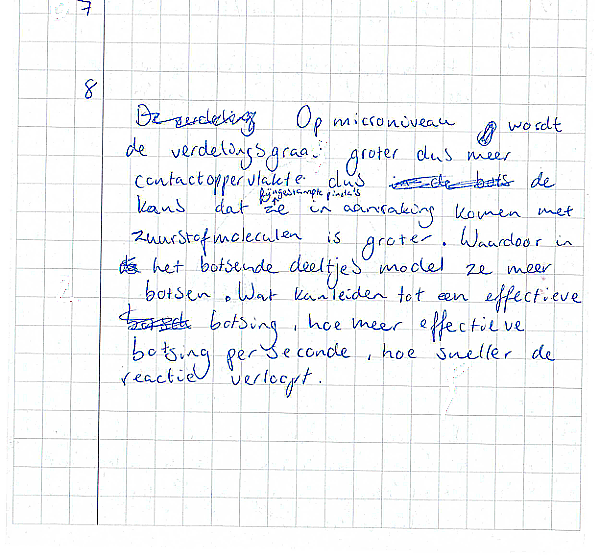 7
8
De verdeling Op microniveau wordt
de verdelingsgraad groter dus meer
contactoppervlakte dus in de bots de
fijngestampte pinda's
kans dat ze in aanraking komen met
zuurstofmoleculen is groter. Waardoor in
het botsende deeltjes model ze meer
botsen. Wat kan leiden tot een effectieve
botsing, hoe meer effectieve
botsing per seconde, hoe sneller de
reactie verloopt.